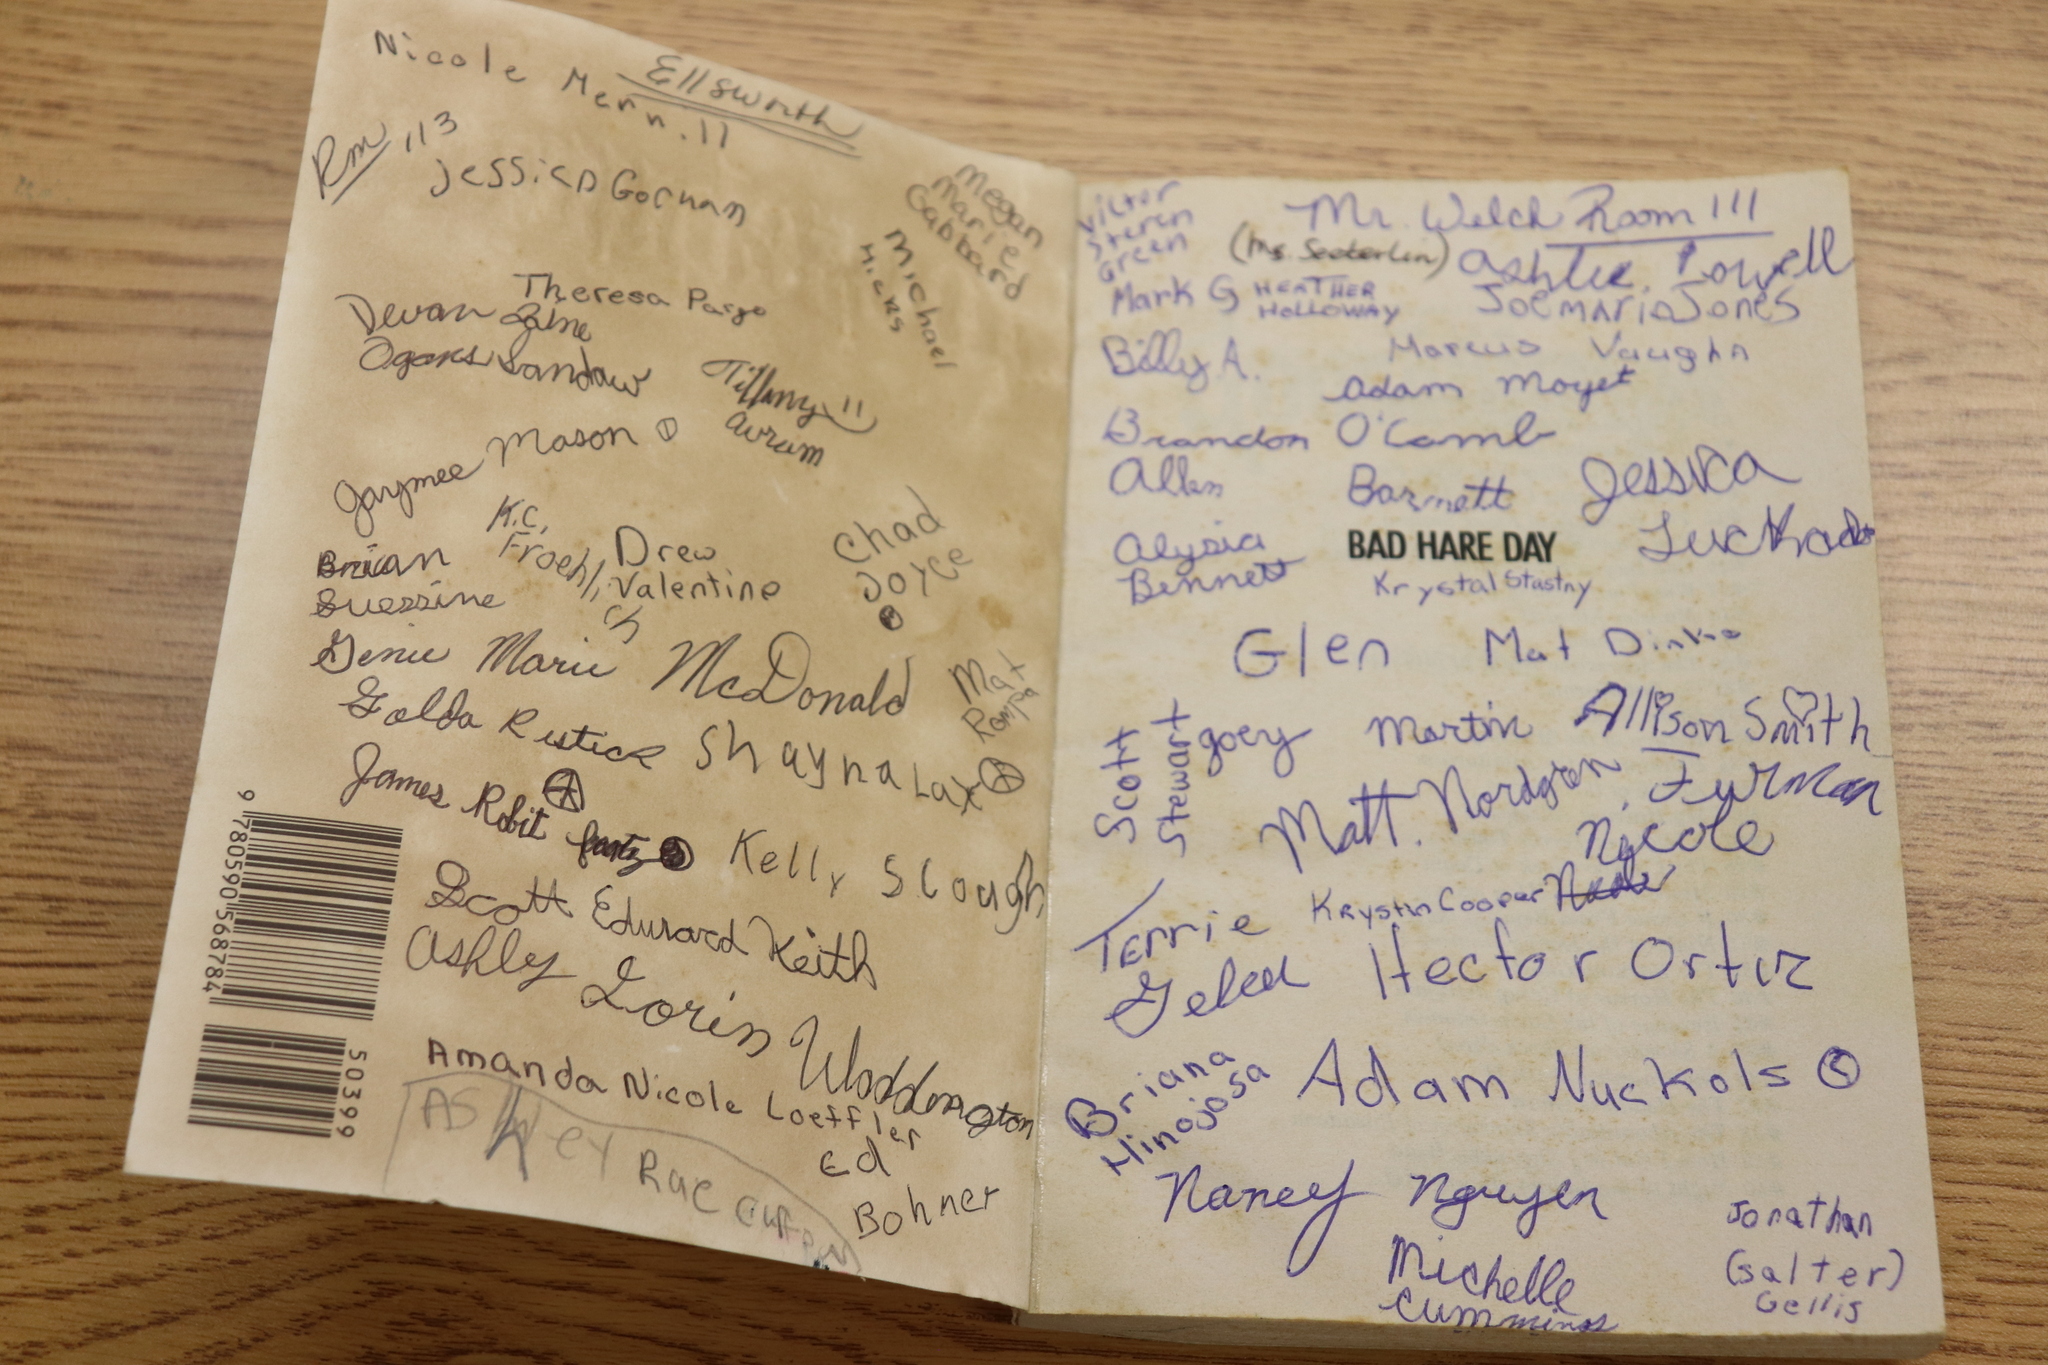 Nicole Merrill
Ellsworth
Rm 113
Jessica Gorman
Megan
Marie
Gabbard
Michael
Hicks
Theresa
Devan
Tiffany !!
Jaymee Mason
K.C.
Froehlich
Drew
Valentine
Chad
Joyce
Brian
Genie Marie McDonald
Mat
Golda
Shayna Lax
James
Kelly Slough
Scott Edward Keith
Ashley Lorin Waddington
Amanda Nicole Loeffler
Ed
Bohner
Ashley Rae
9 780590 568784
50399
Mr. Welch Room 111
Victor
Steven
Green
Mark G
HEATHER
HOLLOWAY
Joemaria Jones
Billy A.
Marcus Vaughn
Adam
Brandon
Allen
Jessica
Alysia
Bennett
BAD HARE DAY
Krystal Stastny
Glen
Mat
Scott
Stewart
Joey Martin
Allison Smith
Matt Nordgren
Furman
Nicole
Terrie
Krystin Cooper
Hector Ortiz
Briana
Hinojosa
Adam Nuckols
Nancy Nguyen
Michelle
Cummings
Jonathan
(Salter)
Gellis